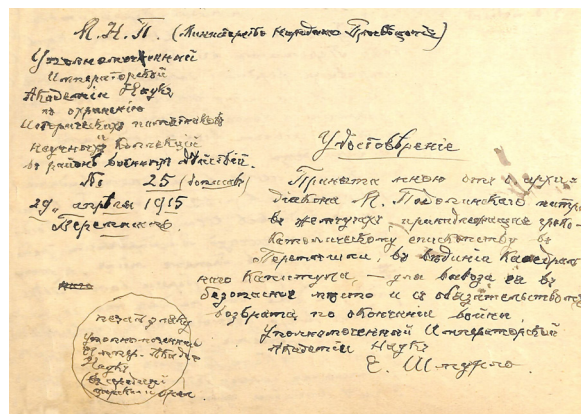 М. Н. П. (Министерство Народнаго Просвѣщенія)
Уполномоченный
Императорской
Академіи Наукъ
по охраненію
Историческихъ памятниковъ
научныхъ Коллекцій
въ районѣ военныхъ дѣйствій.
№ 25
29 апрѣля 1915
Перемышль.
Удостовѣреніе
Принята мною отъ архи-
діакона М. Подолинскаго митра
въ жемчугахъ принадлежащая греко-
католическому епископству въ
Перемышли, въ вѣдѣніи Каѳедраль
наго Капитула — для вывоза ея въ
безопасное мѣсто и съ обязательствомъ
возврата по окончаніи войны.
Уполномоченный Императорской
Академіи Наукъ
Е. Шмурло.
печать
Уполномоченный
Импер. Академіи
Наукъ